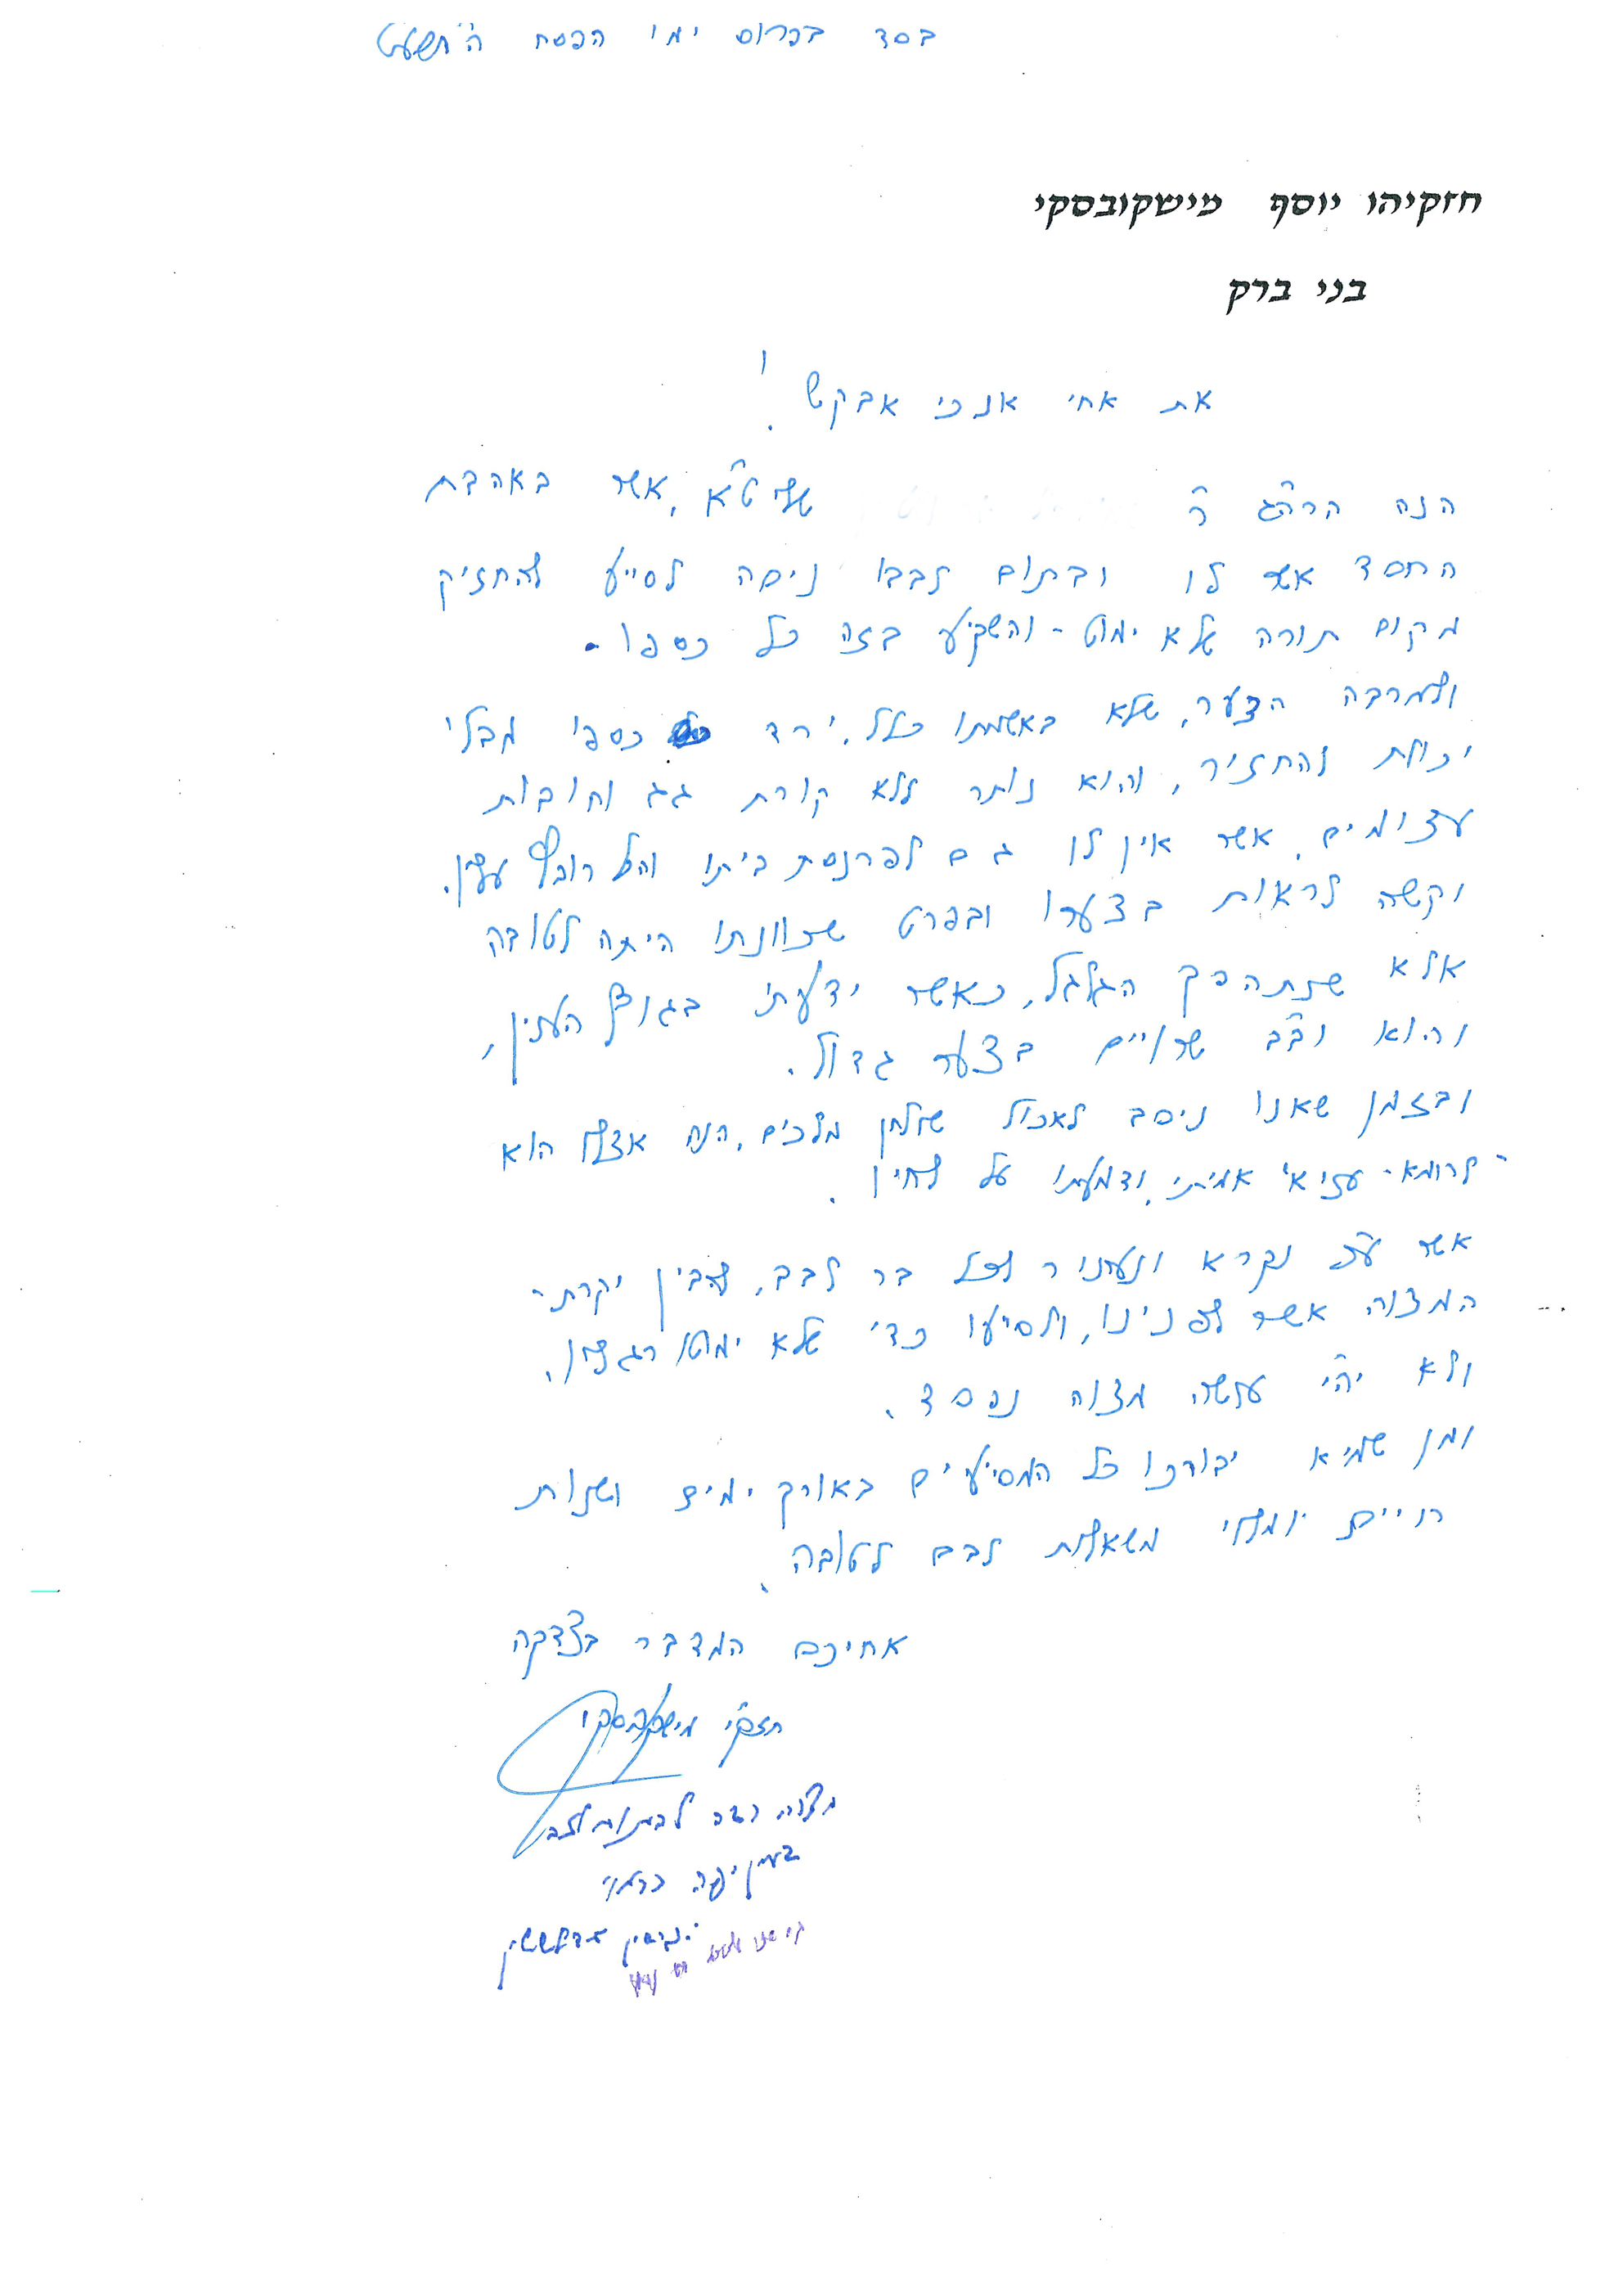 בסד בפרוס ימי הפסח ה'תשע"ט
חזקיהו יוסף מישקובסקי
בני ברק
את אחי אנכי אבקש!
הנה הרה"ג ר' שליט"א, אשר באהבת
החסד אשר לו ובתום לבבו ניסה לסייע להחזיק
מקום תורה שלא ימוט - והשקיע בזה כל כספו.
ולמרבה הצער, שלא באשמתו כלל, ירד כספו מבלי
יכולת להחזיר, והוא נותר ללא קורת גג וחובות
עצומים, אשר אין לו גם לפרנסת ביתו
וקשה לראות בצערו ובפרט שכוונתו היתה לטובה
אלא שנתהפך הגלגל, כאשר ידעתי בגודל הענין,
והוא וב"ב שרויים בצער גדול.
ובזמן שאנו ניסב לאכול שולחן מלכים, הנה אצלו הוא
אמיתי, ודמעתו על לחיו.
אשר ע"כ נקרא ונעורר לכל בר לבב, להבין יקרת-
המצוה אשר לפנינו, ולסייעו כדי שלא ימוטו רגליו,
ולא יהי' עושה מצוה נפסד.
ומן שמיא יבורכו כל המסייעים באורך ימים ושנות
חיים וימולאו משאלות לבם לטובה.
אחיכם המדבר בצדקה
חזקי' מישקובסקי
מצוה רבה